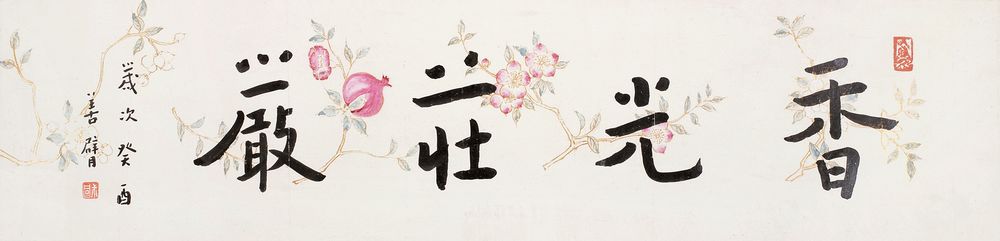 香光莊嚴
歲次癸酉
善臂